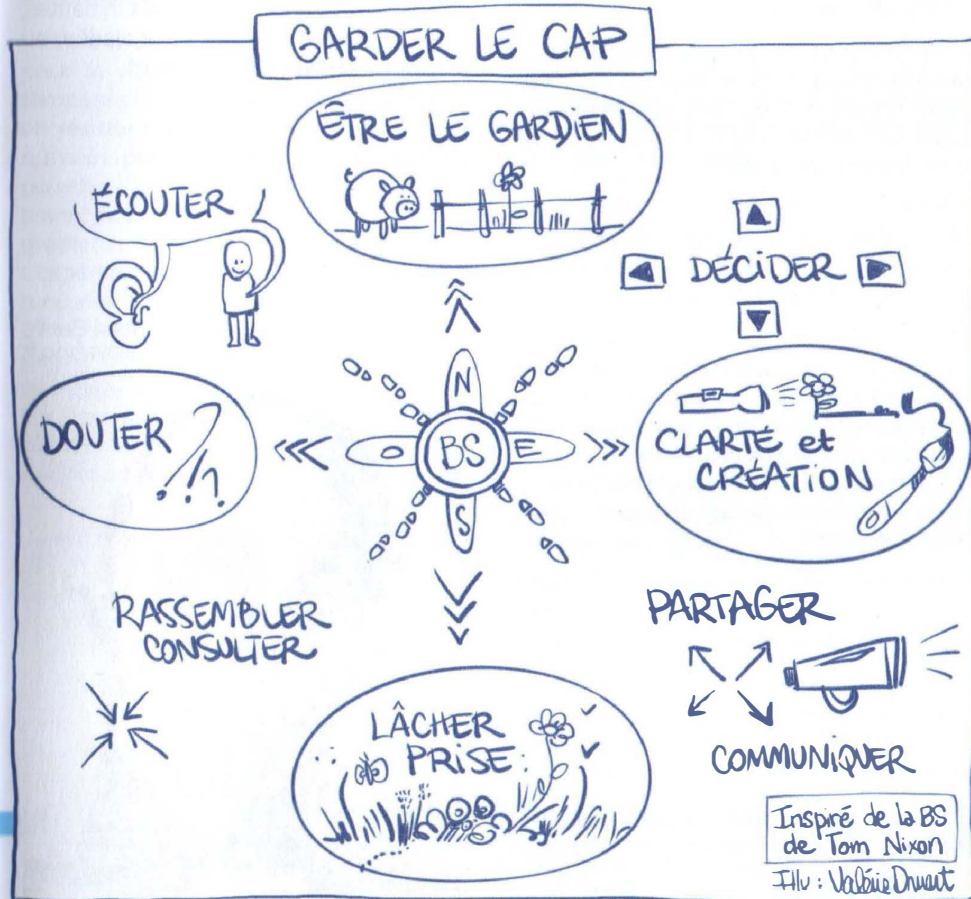 GARDER LE CAP
ÊTRE LE GARDIEN
ÉCOUTER
DÉCIDER
N
DOUTER ?!?
O
BS
E
CLARTÉ et
CRÉATION
S
RASSEMBLER
CONSULTER
PARTAGER
LÂCHER
PRISE
COMMUNIQUER
Inspiré de la BS
de Tom Nixon
Illu : Valérie Druart